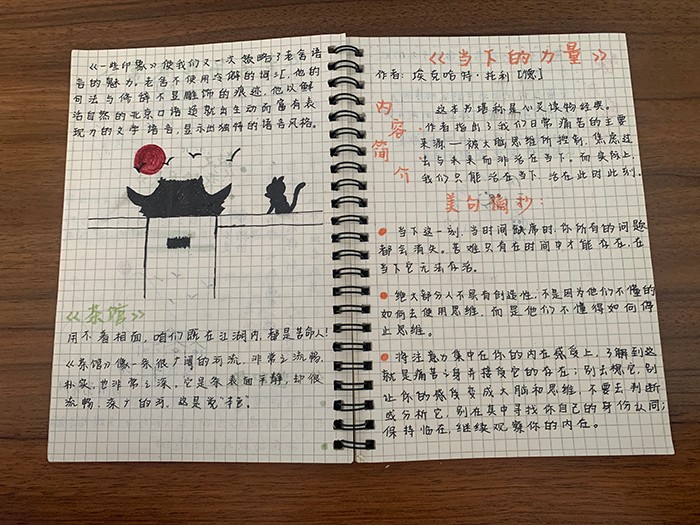 《一些印象》使我们又一次领略了老舍语
言的魅力。老舍不使用冷僻的词汇,他的
句法与修辞不显雕饰的痕迹,他以鲜
活自然的北京口语造就出生动而富有表
现力的文学语言,显示出独特的语言风格。
《茶馆》
用不着相面,咱们既在江湖内,都是苦命人!
《茶馆》像一条很广阔的河流,非常之流畅,
朴实,也非常之深。它是条表面平静,却很
流畅,宽广的河,这是党
《当下的力量》
作者:埃克哈特·托利[德]
内容简介
这本书堪称是心灵读物经典。
作者指出了我们日常痛苦的主要
来源——被大脑思维所控制,焦虑过
去与未来而非活在当下。而实际上,
我们只能活在当下,活在此时此刻。
美句摘抄:
当下这一刻,当时间缺席时,你所有的问题
都会消失。苦难只有在时间中才能存在,在
当下它无法存活。
绝大部分人不具有创造性,不是因为他们不懂的
如何去使用思维,而是他们不懂得如何停
止思维。
将注意力集中在你的内在感受上,了解到这
就是痛苦之身并接受它的存在;别去想它,别
让你的感受变成大脑和思维,不要去判断
或分析它,别在其中寻找你自己的身份认同;
保持临在,继续观察你的内在。